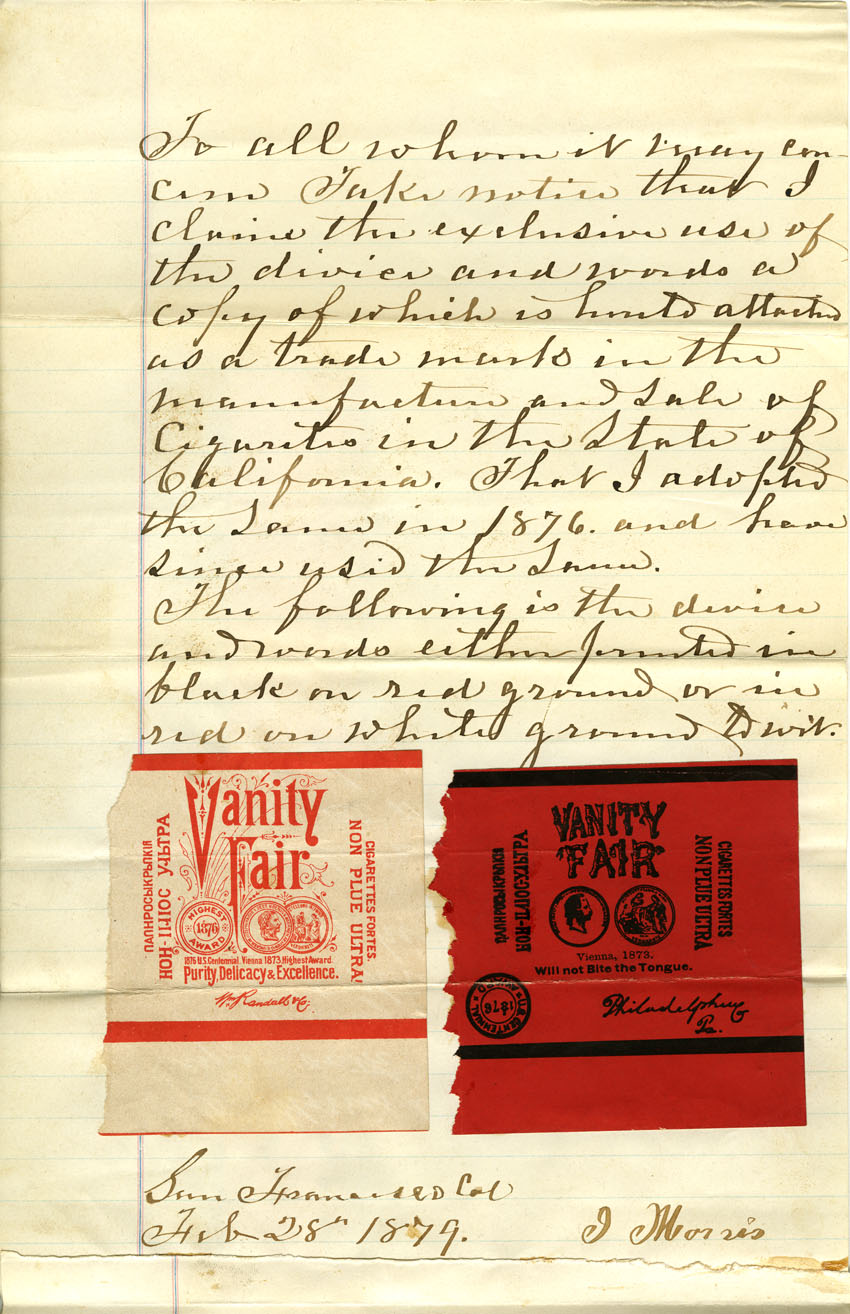 To all whom it may con-
cern Take notice that I
claim the exclusive use of
the divice and words a
copy of which is hereto attached
as a trade mark in the
manufacture and Sale of
Cigarites in the State of
California. That I adopted
the Same in 1876. and have
since used the Same.
The following is the device
and words either printed in
black on red ground or in
red on white ground to wit.
Vanity
Fair
ПАПИРОСЫКРЬПКІЯ
НОН-ПЛЮС УЛЬТРА
CIGARETTES FORTES.
NON PLUE ULTRA!
HIGHEST
1876
AWARD
1876 U.S. Centennial. Vienna 1873. Highest Award
Purity, Delicacy & Excellence.
Wm Randall & Co.
VANITY
FAIR
ПАПИРОСЫКРЬПКІЯ
НОН-ПЛЮС-УЛЬТРА
CIGARETTES FORTES
NON PLUE ULTRA
Vienna, 1873.
Will not Bite the Tongue.
U.S. CENTENNIAL
1876
AWARD
Philadelphia
Pa.
San Francisco Cal
Feb 28th 1879.
I Morris